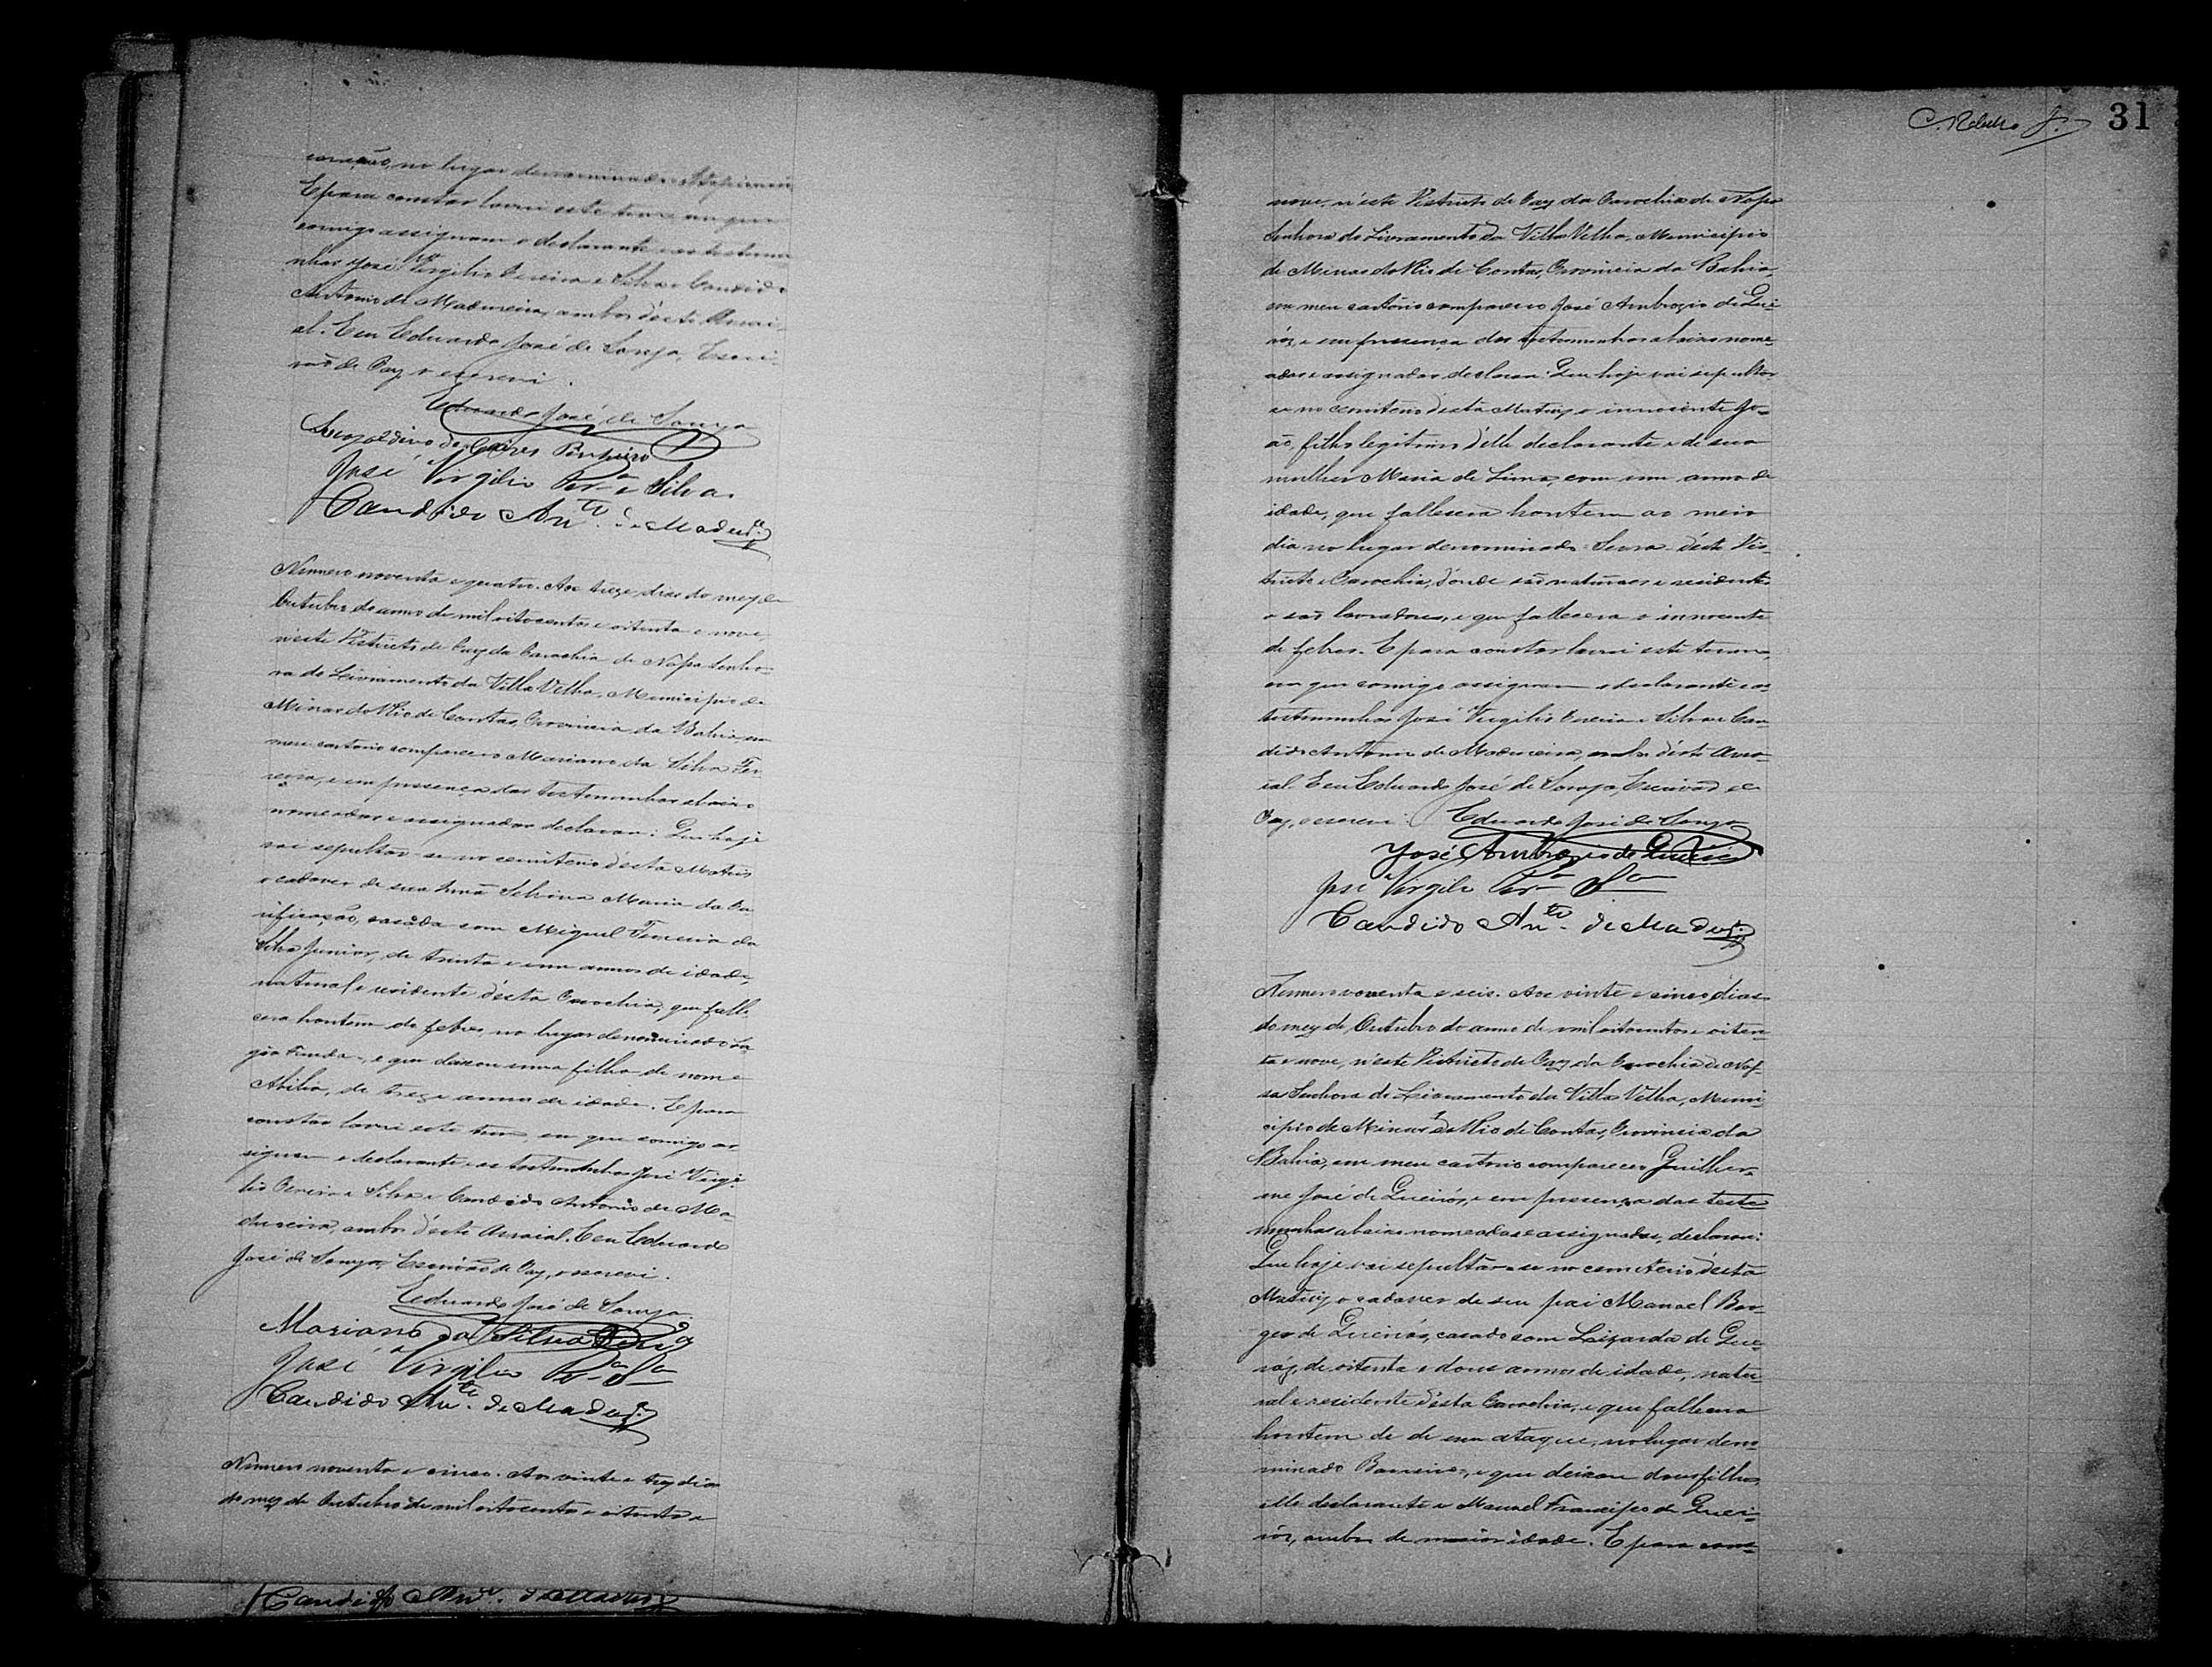 coração, no lugar denominado
E para constar lavrei este termo em que
comigo assignam o declarante e as testemu
nhas José Virgilio Pereira e Silva e Candido
Antonio de Madureira, ambos d'este Arrai-
al. E eu Eduardo José de Souza, Escri-
vão de Paz o escrevi.
Eduardo José de Souza
Leopoldino de Caires Pinheiro
José Virgilio Per.ª e Silva
Candido An.to de Madur.ª
Numero noventa e quatro. Aos treze dias do mez de
Outubro do anno de mil oitocentos e oitenta e nove,
n'este Districto de Paz da Parochia de Nossa Senho-
ra do Livramento da Villa Velha, Municipio de
Minas do Rio de Contas, Provincia da Bahia, em
meu cartorio compareceo Mariano da Silva Per
reira, e em presença das testemunhas abaixo
nomeadas e assignadas declarou: Que hoje
vai sepultar-se no cemiterio d'esta Matriz
o cadaver de sua irmã Silvina Maria da Pu
rificação, casada com Miguel Ferreira da
Silva Junior, de trinta e um annos de idade,
natural e residente d'esta Parochia, que falle
cera hontem de febre, no lugar denominado La
gôa Funda, e que deixou uma filha de nome
Abilia, de treze annos de idade. E para
constar lavrei este termo, em que comigo as
signam o declarante e as testemunhas José Virgi
lio Pereira e Silva e Candido Antonio de Ma-
dureira, ambos d'este Arraial. E eu Eduardo
José de Souza, Escrivão de Paz, o escrevi.
Eduardo José de Souza
Mariano da Silva
José Virgilio Per.ª S.ª
Candido An.to de Madur.ª
Numero noventa e cinco. Aos vinte e trez dias
do mez de Outubro de mil oitocentos e oitenta e
Candido An.to de Madur.ª
31
nove, n'este Districto de Paz da Parochia de Nossa
Senhora do Livramento da Villa Velha, Municipio
de Minas do Rio de Contas, Provincia da Bahia,
em meu cartorio compareceo José Ambrozio de Quei-
róz, e em presença das testemunhas abaixo nome-
adas e assignadas declarou: Que hoje vai sepultar-
se no cemiterio d'esta Matriz o innocente Jo-
ão, filho legitimo d'elle declarante e de sua
mulher Maria de Lima, com um anno de
idade, que fallecera hontem ao meio
dia no lugar denominado Serra d'este Dis-
tricto e Parochia, d'onde são naturaes e residentes
e são lavradores, e que fallecera o innocente
de febres. E para constar lavrei este termo,
em que comigo assignam o declarante e as
testemunhas José Virgilio Pereira e Silva e Can
dido Antonio de Madureira, ambos d'este Arra-
ial. E eu Eduardo José de Souza, Escrivão de
Paz, o escrevi. Eduardo José de Souza
José Ambrozio de Queiroz
José Virgilio Per.ª S.ª
Candido An.to de Madur.ª
Numero noventa e seis. Aos vinte e cinco dias
do mez de Outubro do anno de mil oitocentos e oiten-
ta e nove, n'este Districto de Paz da Parochia de Nos-
sa Senhora do Livramento da Villa Velha, Muni-
cipio de Minas do Rio de Contas, Provincia da
Bahia, em meu cartorio compareceo Guilher-
me José de Queiróz, e em presença das teste
munhas abaixo nomeadas e assignadas, declarou:
Que hoje vai sepultar-se no cemiterio d'esta
Matriz o cadaver de seu pai Manoel Bor-
ges de Queiróz, casado com Lizarda de Quei-
róz, de oitenta e dous annos de idade, natu-
ral e residente d'esta Parochia, e que fallecera
hontem de de um ataque, no lugar deno-
minado Barreiro, e que deixou dous filhos,
elle declarante e Manoel Francisco de Quei-
róz, ambos de maior idade. E para cons-